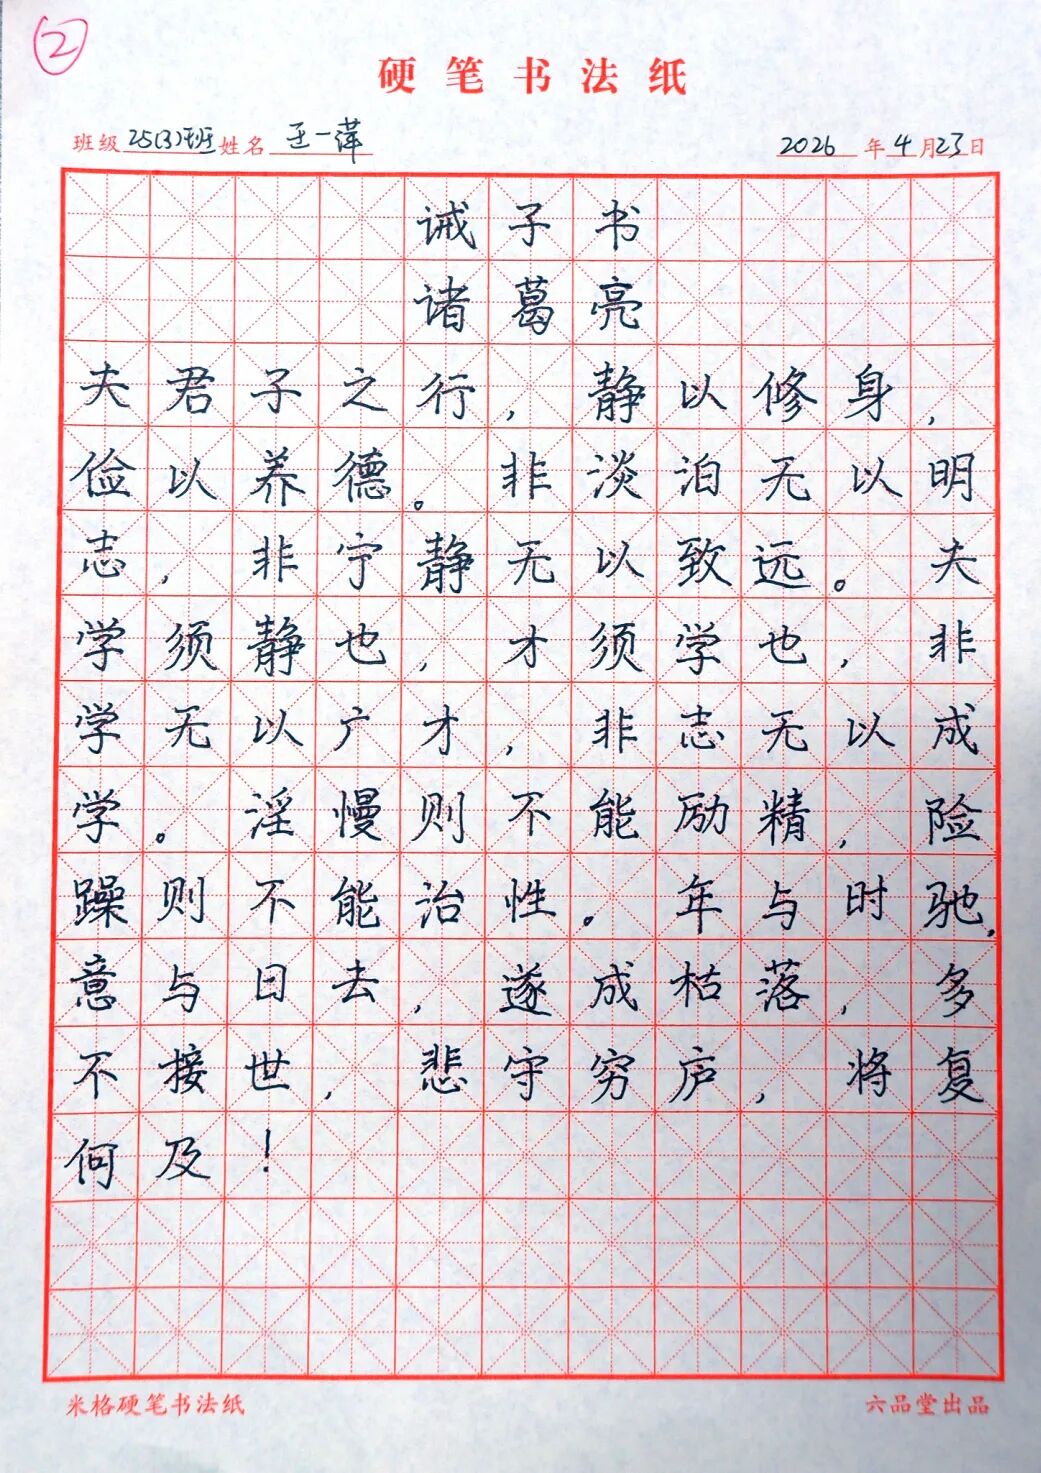 2
硬笔书法纸
班级 25(3)班 姓名 王一萍 2026 年 4 月 23 日
诫子书
诸葛亮
夫君子之行，静以修身，
俭以养德。非淡泊无以明
志，非宁静无以致远。夫
学须静也，才须学也，非
学无以广才，非志无以成
学。淫慢则不能励精，险
躁则不能治性。年与时驰，
意与日去，遂成枯落，多
不接世，悲守穷庐，将复
何及！
米格硬笔书法纸 六品堂出品